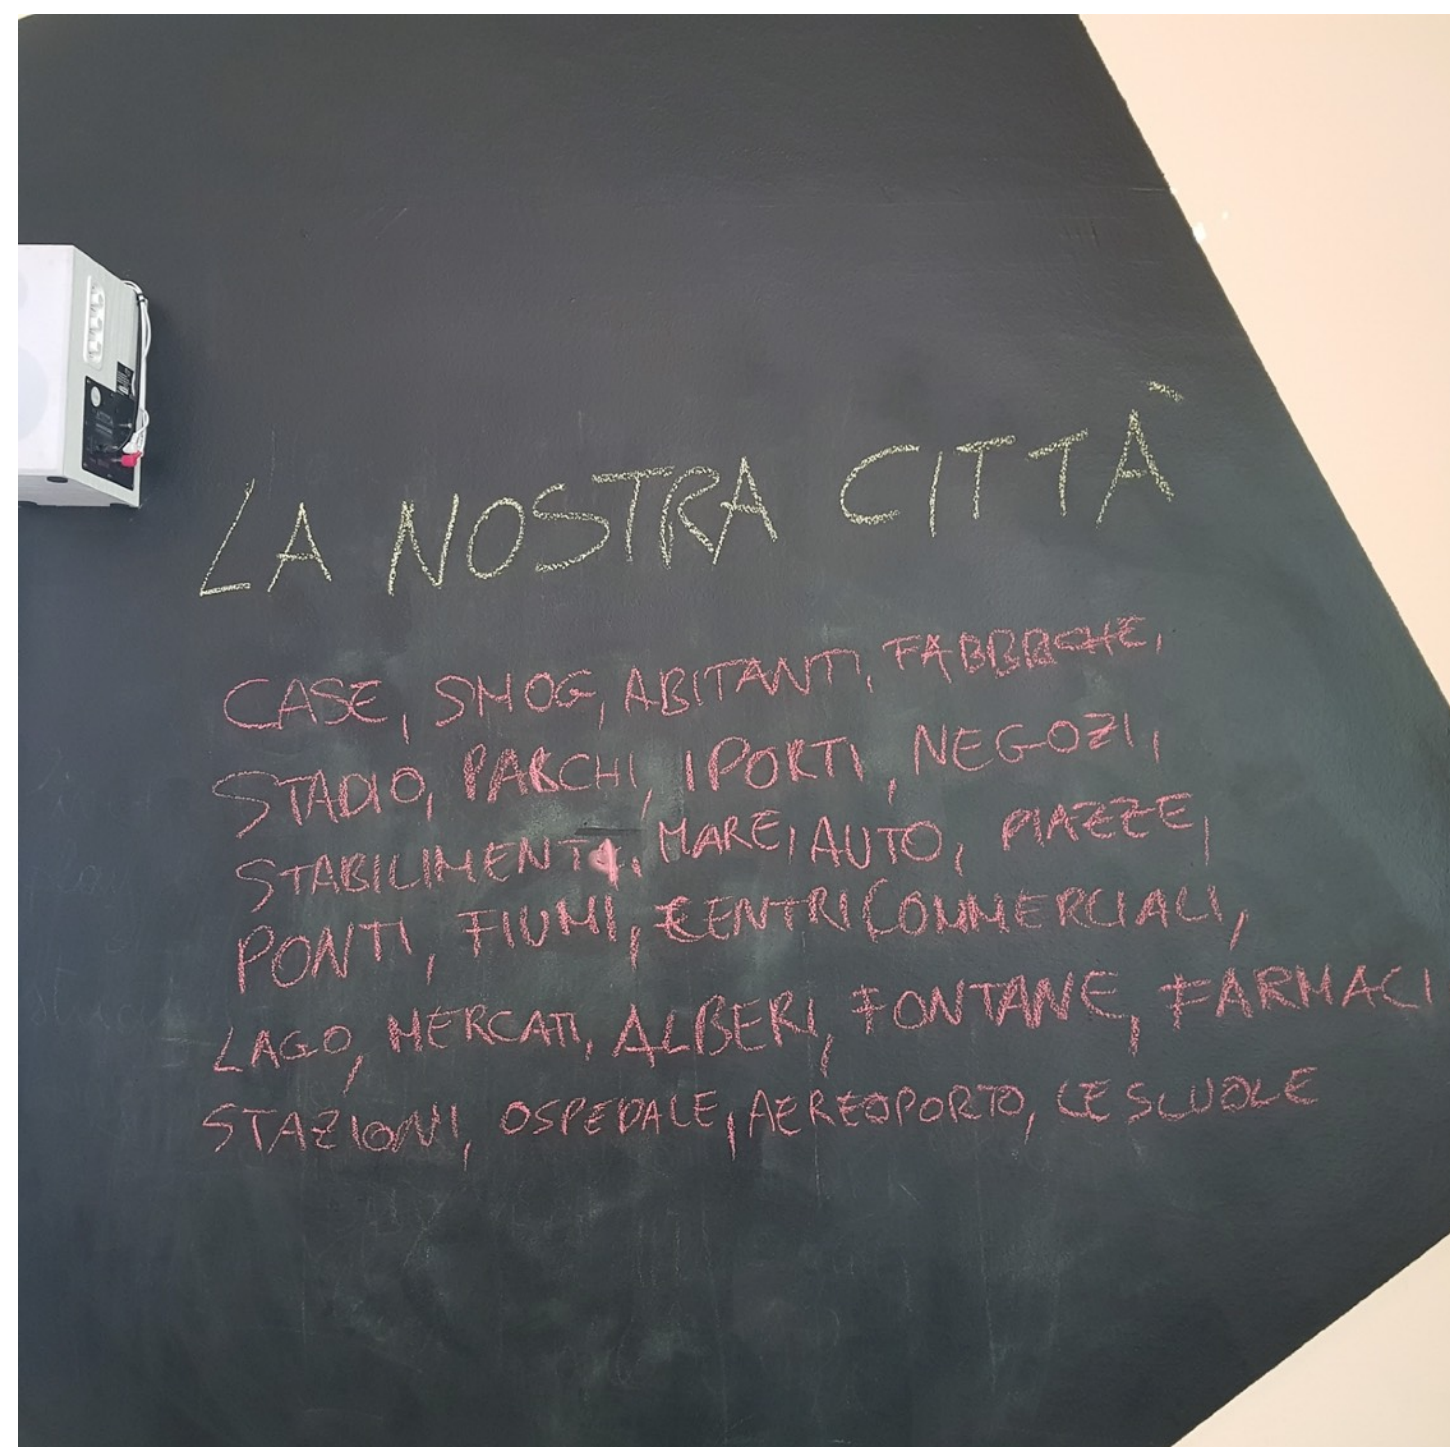 LA NOSTRA CITTÀ
CASE, SMOG, ABITANTI, FABBRICHE,
STADIO, PARCHI, I PORTI, NEGOZI,
STABILIMENTI, MARE, AUTO, PIAZZE,
PONTI, FIUMI, CENTRI COMMERCIALI,
LAGO, MERCATI, ALBERI, FONTANE, FARMACI
STAZIONI, OSPEDALE, AEREOPORTO, LE SCUOLE